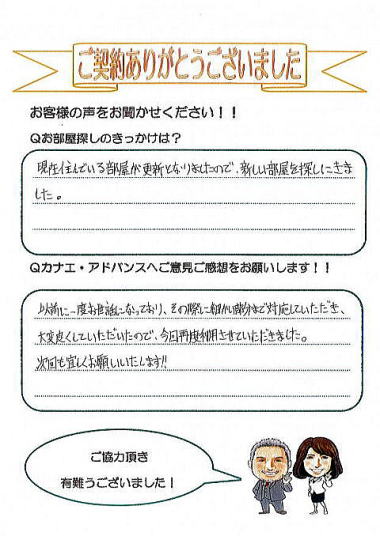 ご契約ありがとうございました
お客様の声をお聞かせください！！
Qお部屋探しのきっかけは？
現在住んでいる部屋が更新となりましたので、新しい部屋を探しにきま
した。
Qカナエ・アドバンスへご意見ご感想をお願いします！！
以前に一度お世話になっており、その際に細かい部分まで対応していただき、
大変良くしていただいたので、今回再度利用させていただきました。
次回も宜しくお願いいたします!!
ご協力頂き
有難うございました！